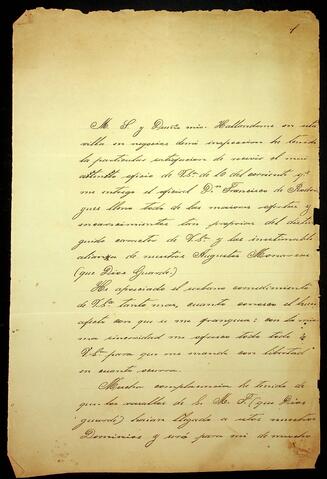 1
M. S. y Dueño mio. Hallandome en esta
villa en negocios de mi inspeccion he tenido
la particular satisfacion de recevir el mui
attento oficio de V.S.ª de 16 del corriente q.e
me entrego el oficial D.n Francisco de
que lleno todo de las maiores ofertas y
encarecimientos tan proprios del distin
guido caracter de V.S.ª y las inestimable
alianza de nuestros Augustos Monarcas
(que Dios Guarde.)
He apreciado el urbano comedimiento
de V.S.ª tanto mas, cuanto conosco el buen
afecto con que se me franquea: con la mis
ma sinceridad me ofresco todo todo à
V.S.ª para que me mande con libertad
en cuanto ocurra.
Mucha complacencia he tenido de
que los vasallos de S. M. F. (que Dios
guarde) haian llegado a estos nuestros
Dominios y será para mi de mucho